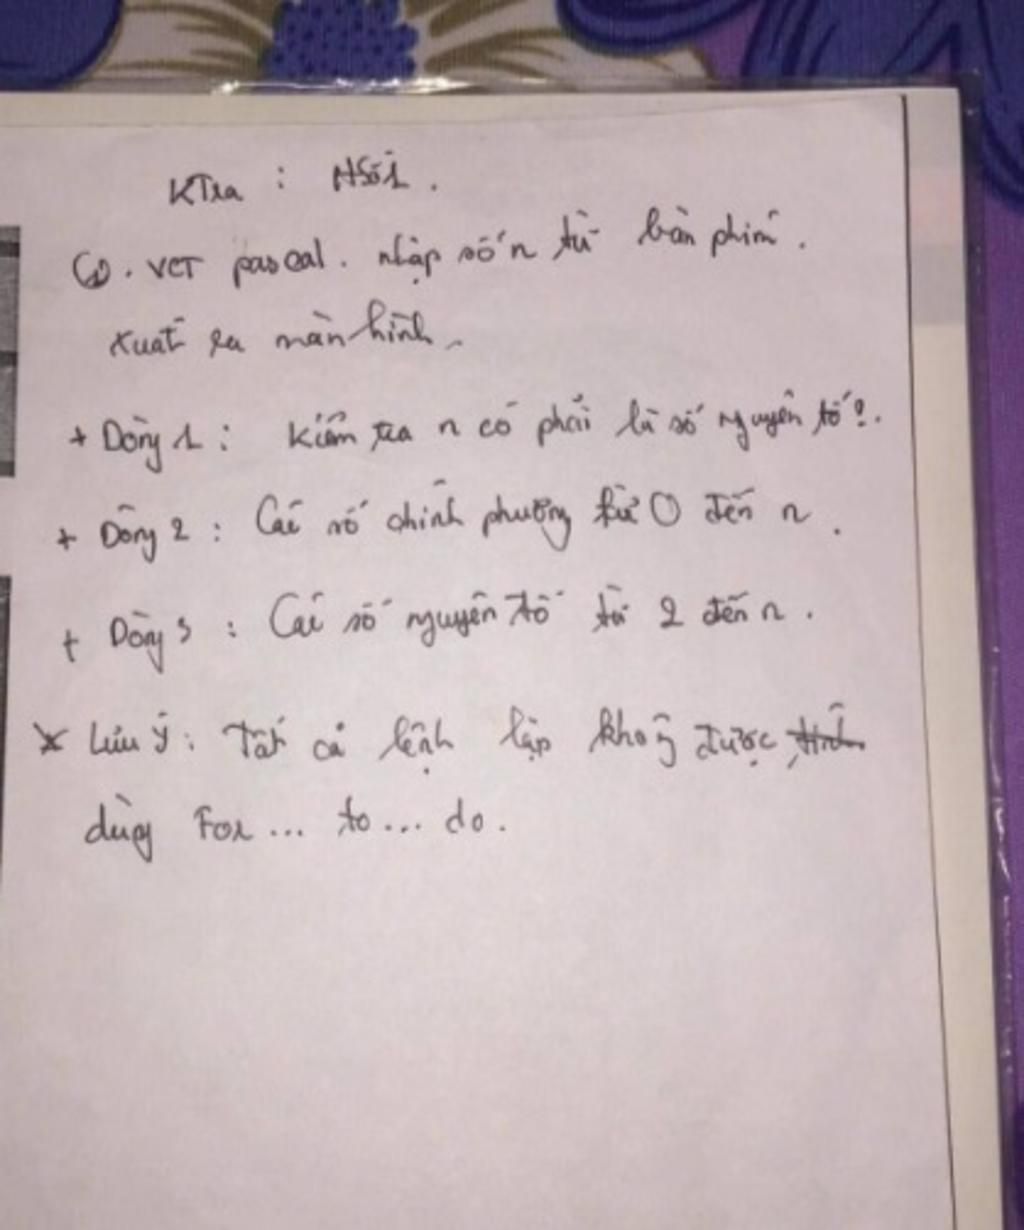 KTra : HSố1.
. VCT pascal. nhập số n từ bàn phím.
xuất ra màn hình.
+ Dòng 1 : Kiểm tra n có phải là số nguyên tố?.
+ Dòng 2 : Các số chính phương từ 0 đến n.
+ Dòng 3 : Các số nguyên tố từ 2 đến n.
* Lưu ý : Tất cả lệnh lặp không được
dùng For... to... do.